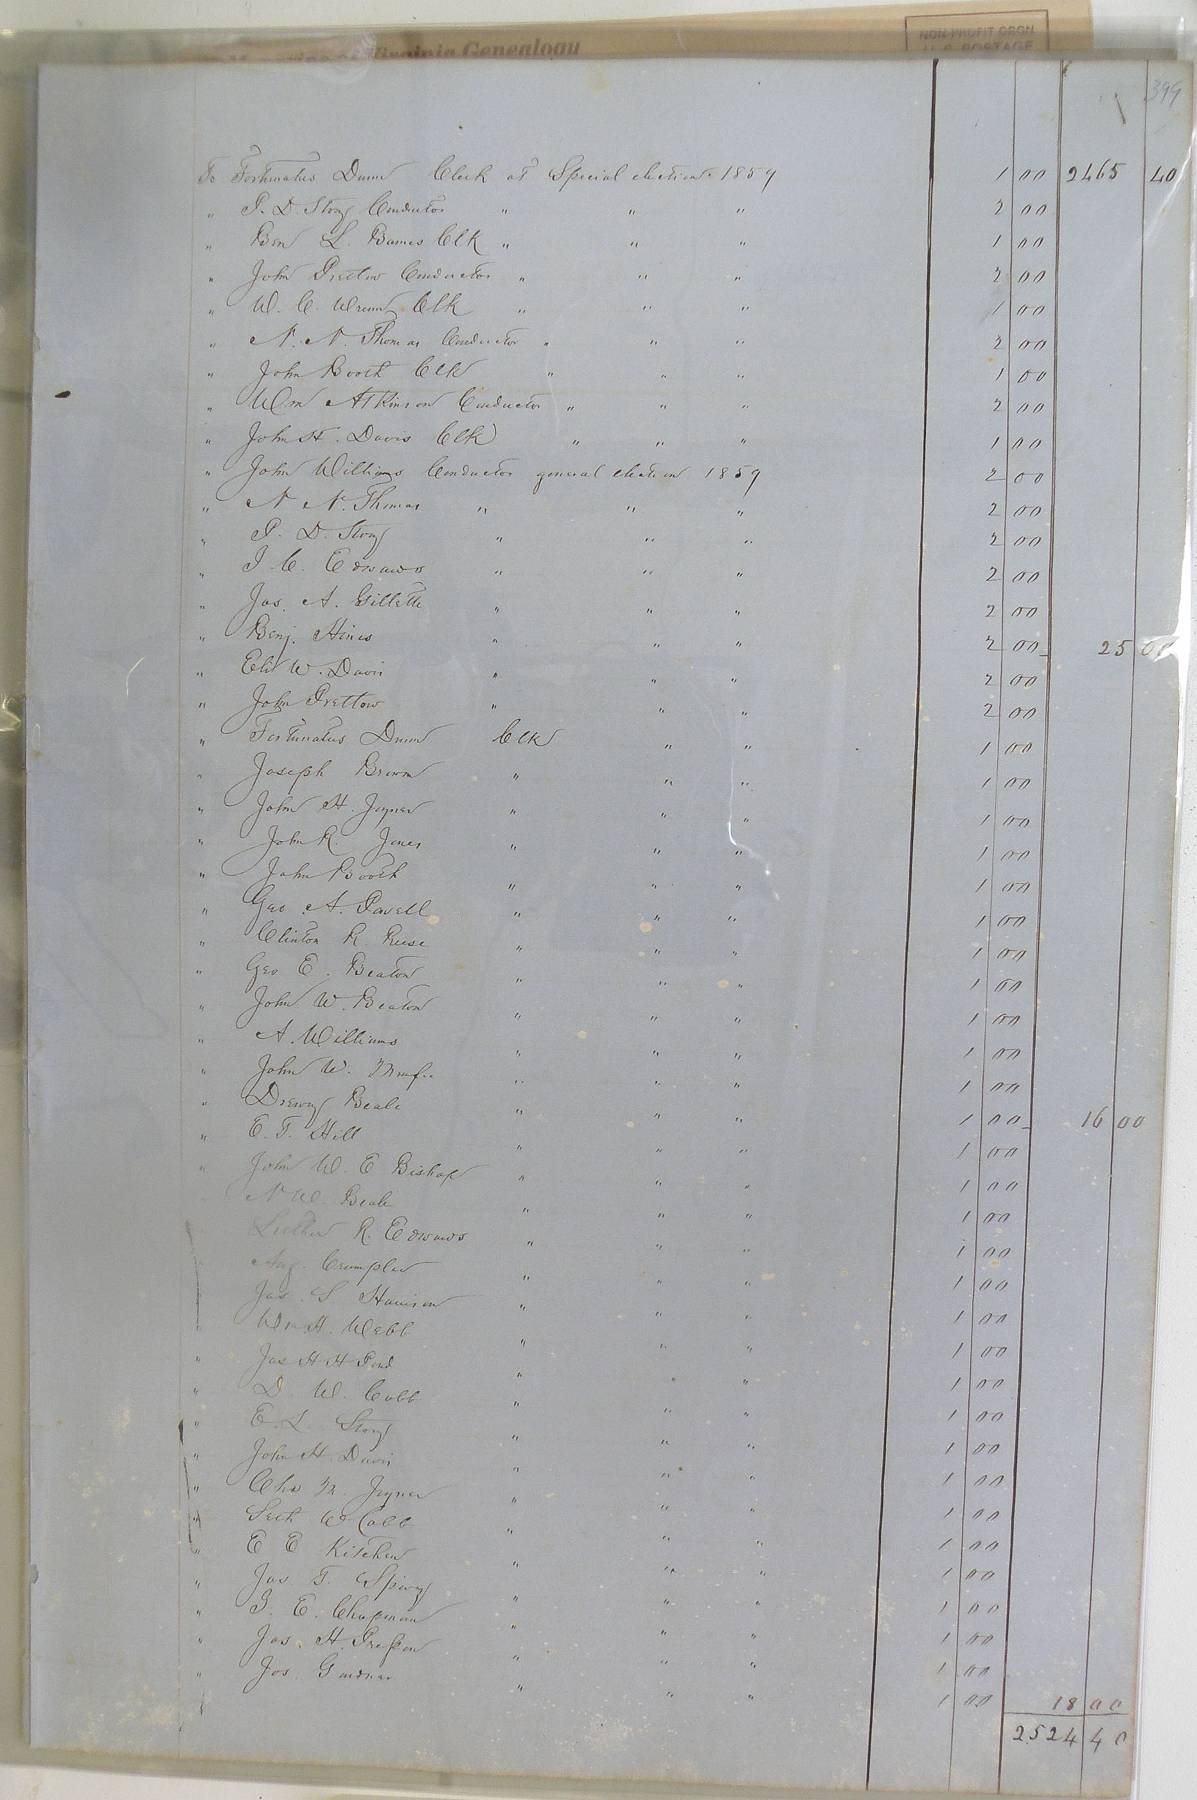 Virginia Genealogy
NON-PROFIT ORGN
U.S. POSTAGE
399
To Fortunatus Dunn Clerk at Special election 1859 1 00 2465 40
" P. D. Story Conductor " " " 2 00
" Ben L. Barnes Clk " " " 1 00
" John Pretlow Conductor " " " 2 00
" W. C. Wrenn Clk " " " 1 00
" N. N. Thomas Conductor " " " 2 00
" John Booth Clk " " " 1 00
" Wm Atkinson Conductor " " " 2 00
" John H. Davis Clk " " " 1 00
" John Williams Conductor general election 1859 2 00
" N N. Thomas " " " 2 00
" P. D. Story " " " 2 00
" J. C. Edwards " " " 2 00
" Jas. A. Gillette " " " 2 00
" Benj. Hines " " " 2 00 25 00
" Eli W. Davis " " " 2 00
" John Prettow " " " 2 00
" Fortunatus Dunn Clk " " 1 00
" Joseph Brown " " " 1 00
" John H. Joyner " " " 1 00
" John R. Jones " " " 1 00
" John Booth " " " 1 00
" Geo. A. Powell " " " 1 00
" Clinton R. Reese " " " 1 00
" Geo E. Beaton " " " 1 00
" John W. Beaton " " " 1 00
" A. Williams " " " 1 00
" John W. " " " 1 00
" Drewry Beale " " " 1 00 16 00
" E. T. Hill " " " 1 00
" John W. E Bishop " " " 1 00
" N W. Beale " " " 1 00
Luther R. Edwards " " " 1 00
Aug. Crumpler " " " 1 00
Jas. S Harrison " " " 1 00
" Wm H. Webb " " " 1 00
" Jas H H Pond " " " 1 00
" D. W. Cobb " " " 1 00
" E. L. Story " " " 1 00
" John H. Davis " " " 1 00
" Chs M. Joyner " " " 1 00
" Seth W Cobb " " " 1 00
" E E Kitchen " " " 1 00
" Jas T. Spivey " " " 1 00
" J. E. Chapman " " " 1 00
" Jas. H. Presson " " " 1 00
" Jos. Gardner " " " 1 00
1 00 18 00
2524 40